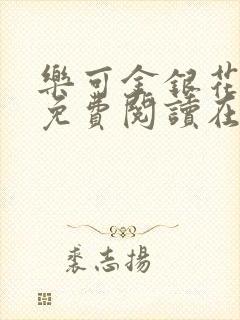 樂可金銀花
免費閱讀在
裘志揚